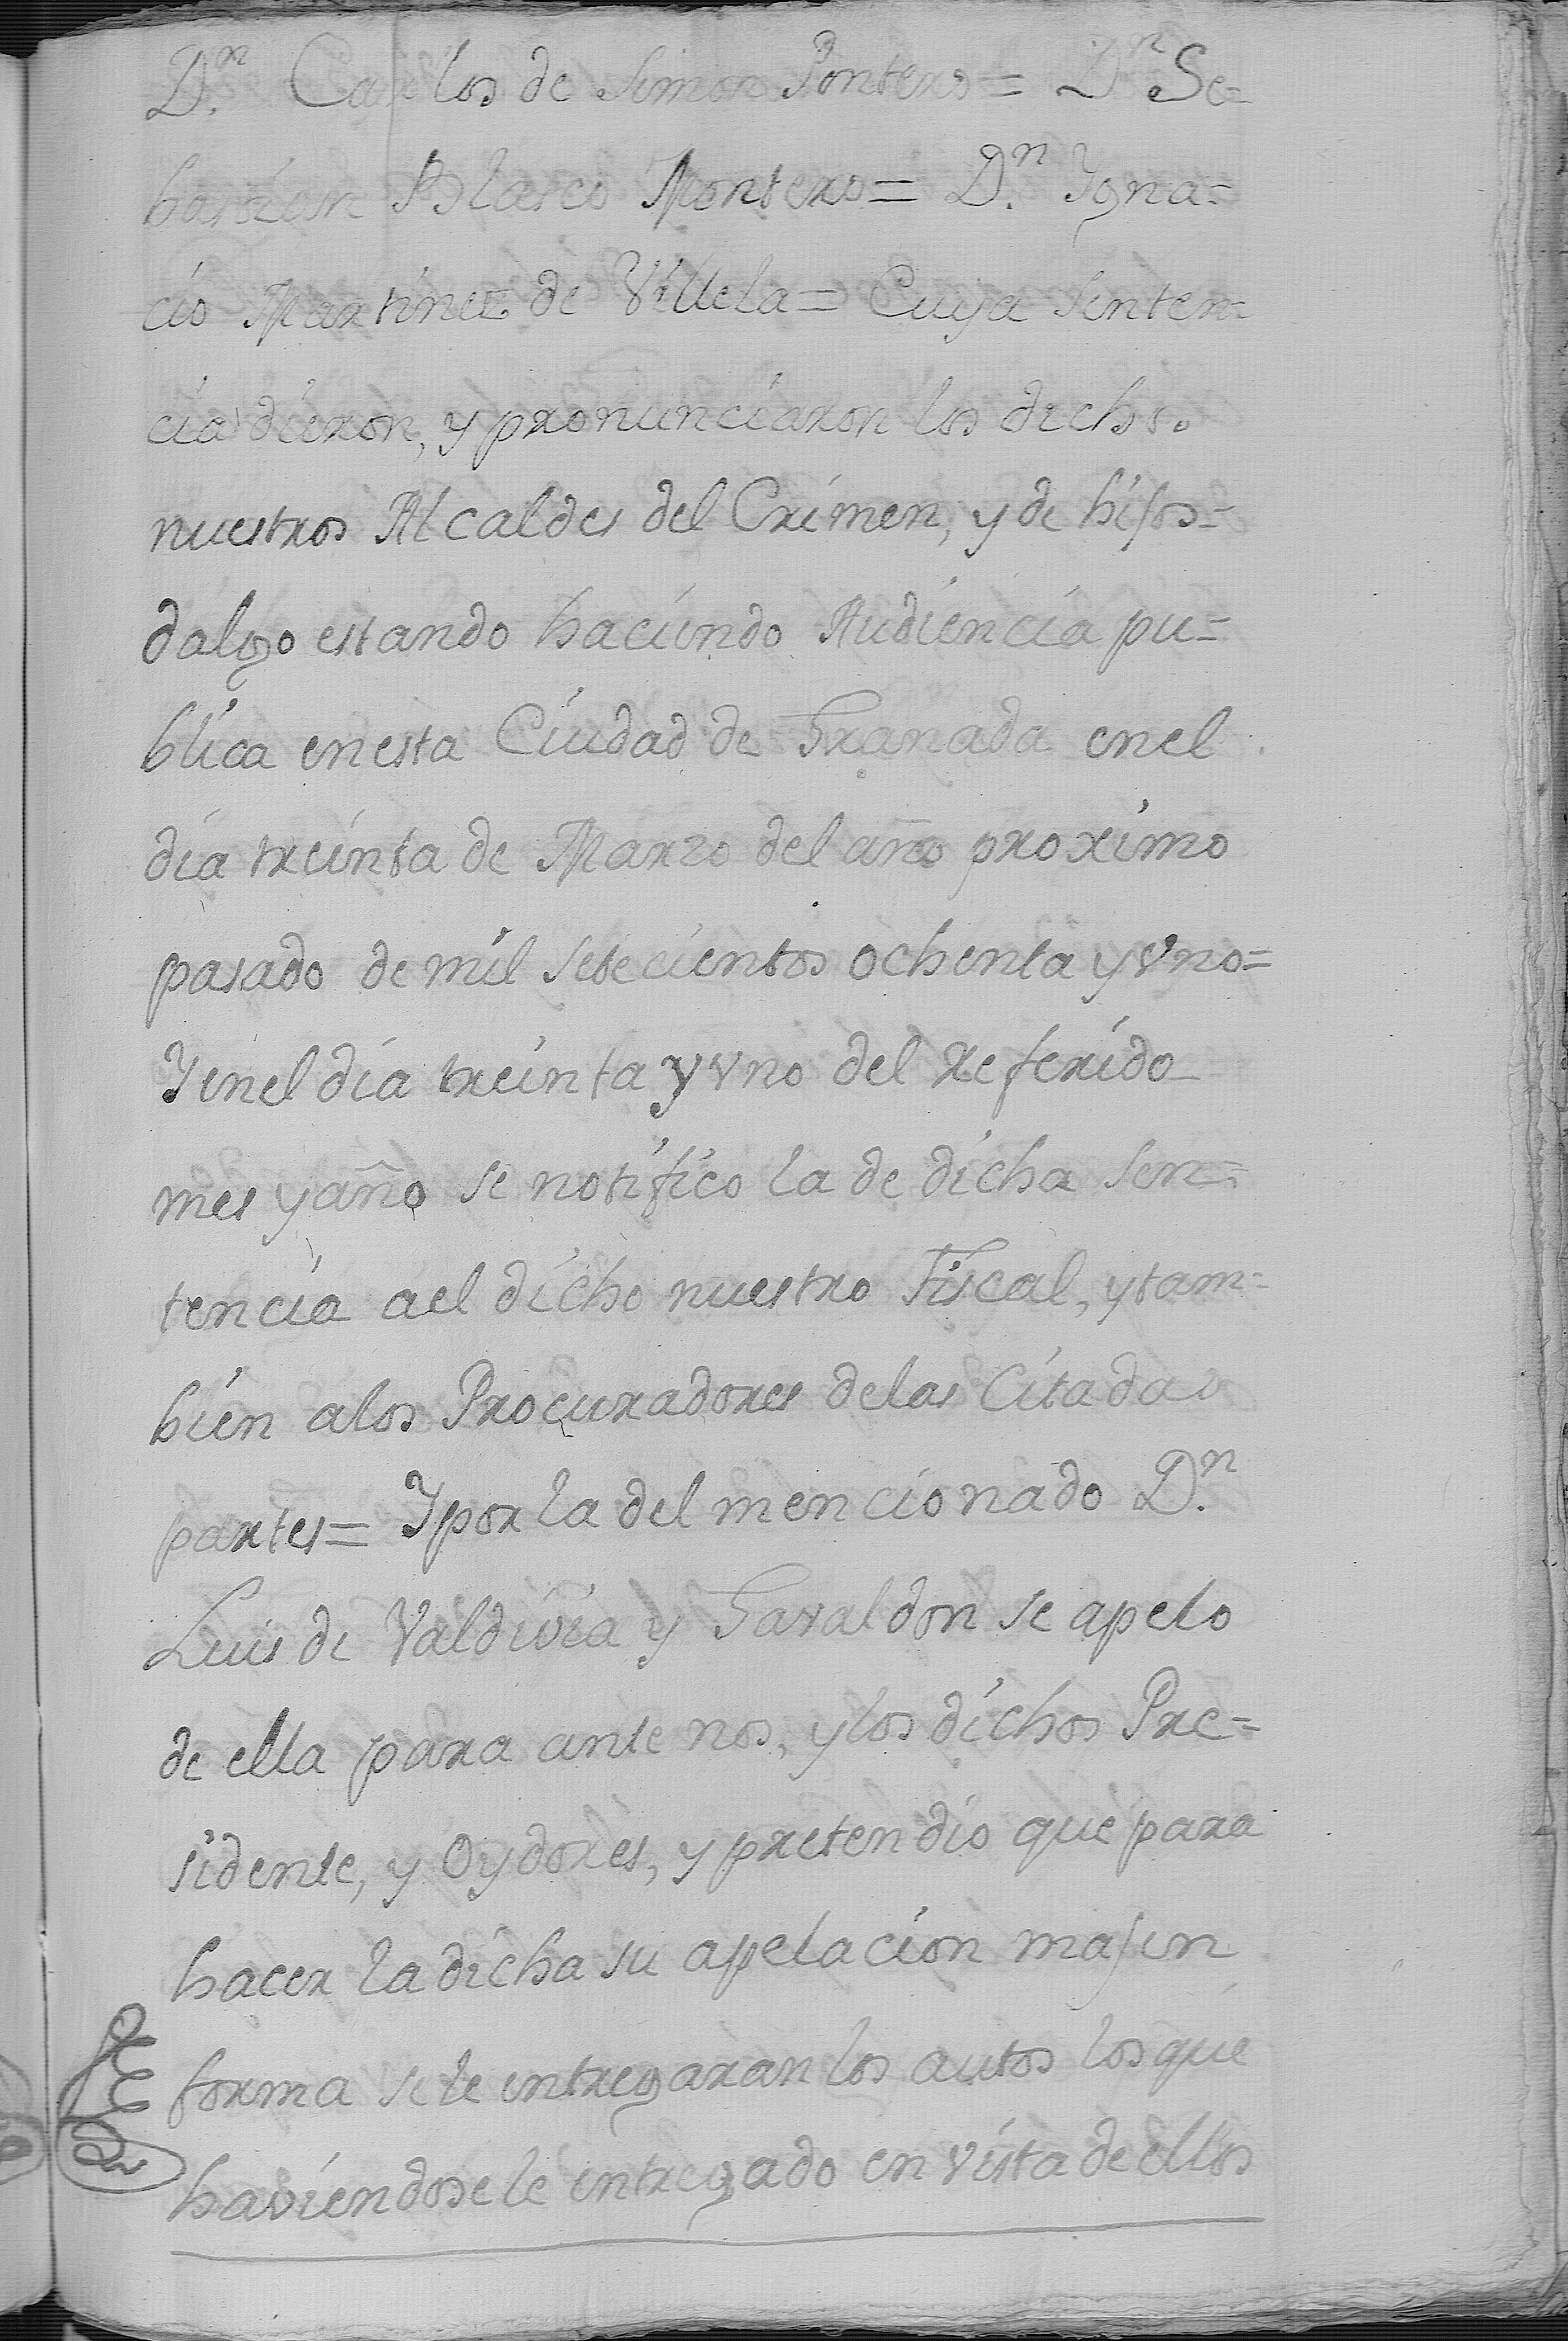 Dn. Carlos de Simon Pontero = Dn Se=
bastian Blasco Montero = Dn. Ygna=
cio Martinez de Villela = Cuya senten=
cia dieron, y pronunciaron los dichos.
nuestros Alcaldes del Crimen, y de hijos=
dalgo estando haciendo Audiencia pu=
blica en esta Ciudad de Granada en el
dia treinta de Marzo del año proximo
pasado de mil setecientos ochenta y vno=
Y en el dia treinta y vno del referido
mes y año se notifico la de dicha sen=
tencia a el dicho nuestro Fiscal, y tam=
bien a los Procuradores de las Citadas
partes = Y por la del mencionado Dn.
Luis de Valdivia y Gavaldon se apelo
de ella para ante nos, y los dichos Pre=
sidente, y Oydores, y pretendio que para
hacer la dicha su apelacion mas en
forma se le entregaran los autos los que
haviendosele entregado en vista de ellos